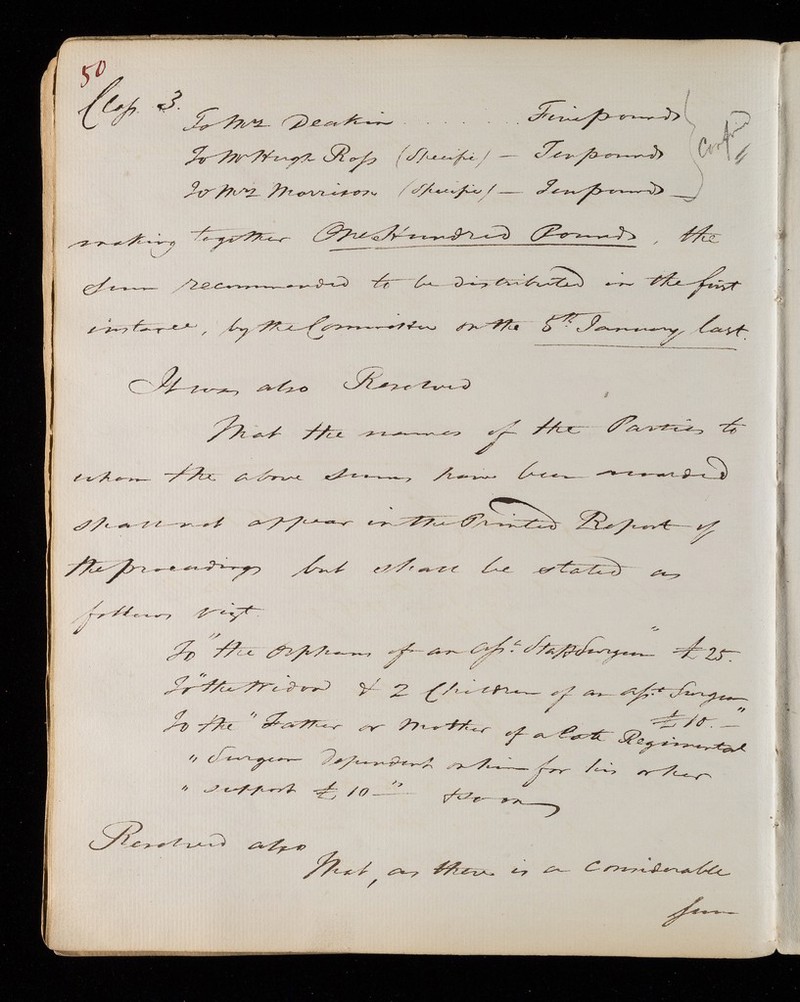 50
Class 3.
To Mrs Deakin . . . . . . . Five pounds
To Mr Hugh Ross (Specific) — Ten pounds
To Mrs Morrison (Specific) — Ten pounds —
making together One Hundred Pounds, the
Sum recommended to be distributed in the first
instance, by the Committee on the 5th January last.
It was also Resolved
That the names of the Parties to
whom the above Sums have been awarded
shall not appear in the Printed Report of
the proceedings but shall be stated as
follows vizt
To "the Orphans of an Asst. Staff Surgeon" £25.
To "the Widow & 2 Children of an Asst Surgeon
£10. — "
To the "Father or Mother of a late Regimental
" Surgeon dependent on him for his or her
" support £10 — " & so on
Resolved also
That, as there is a Considerable
Sum